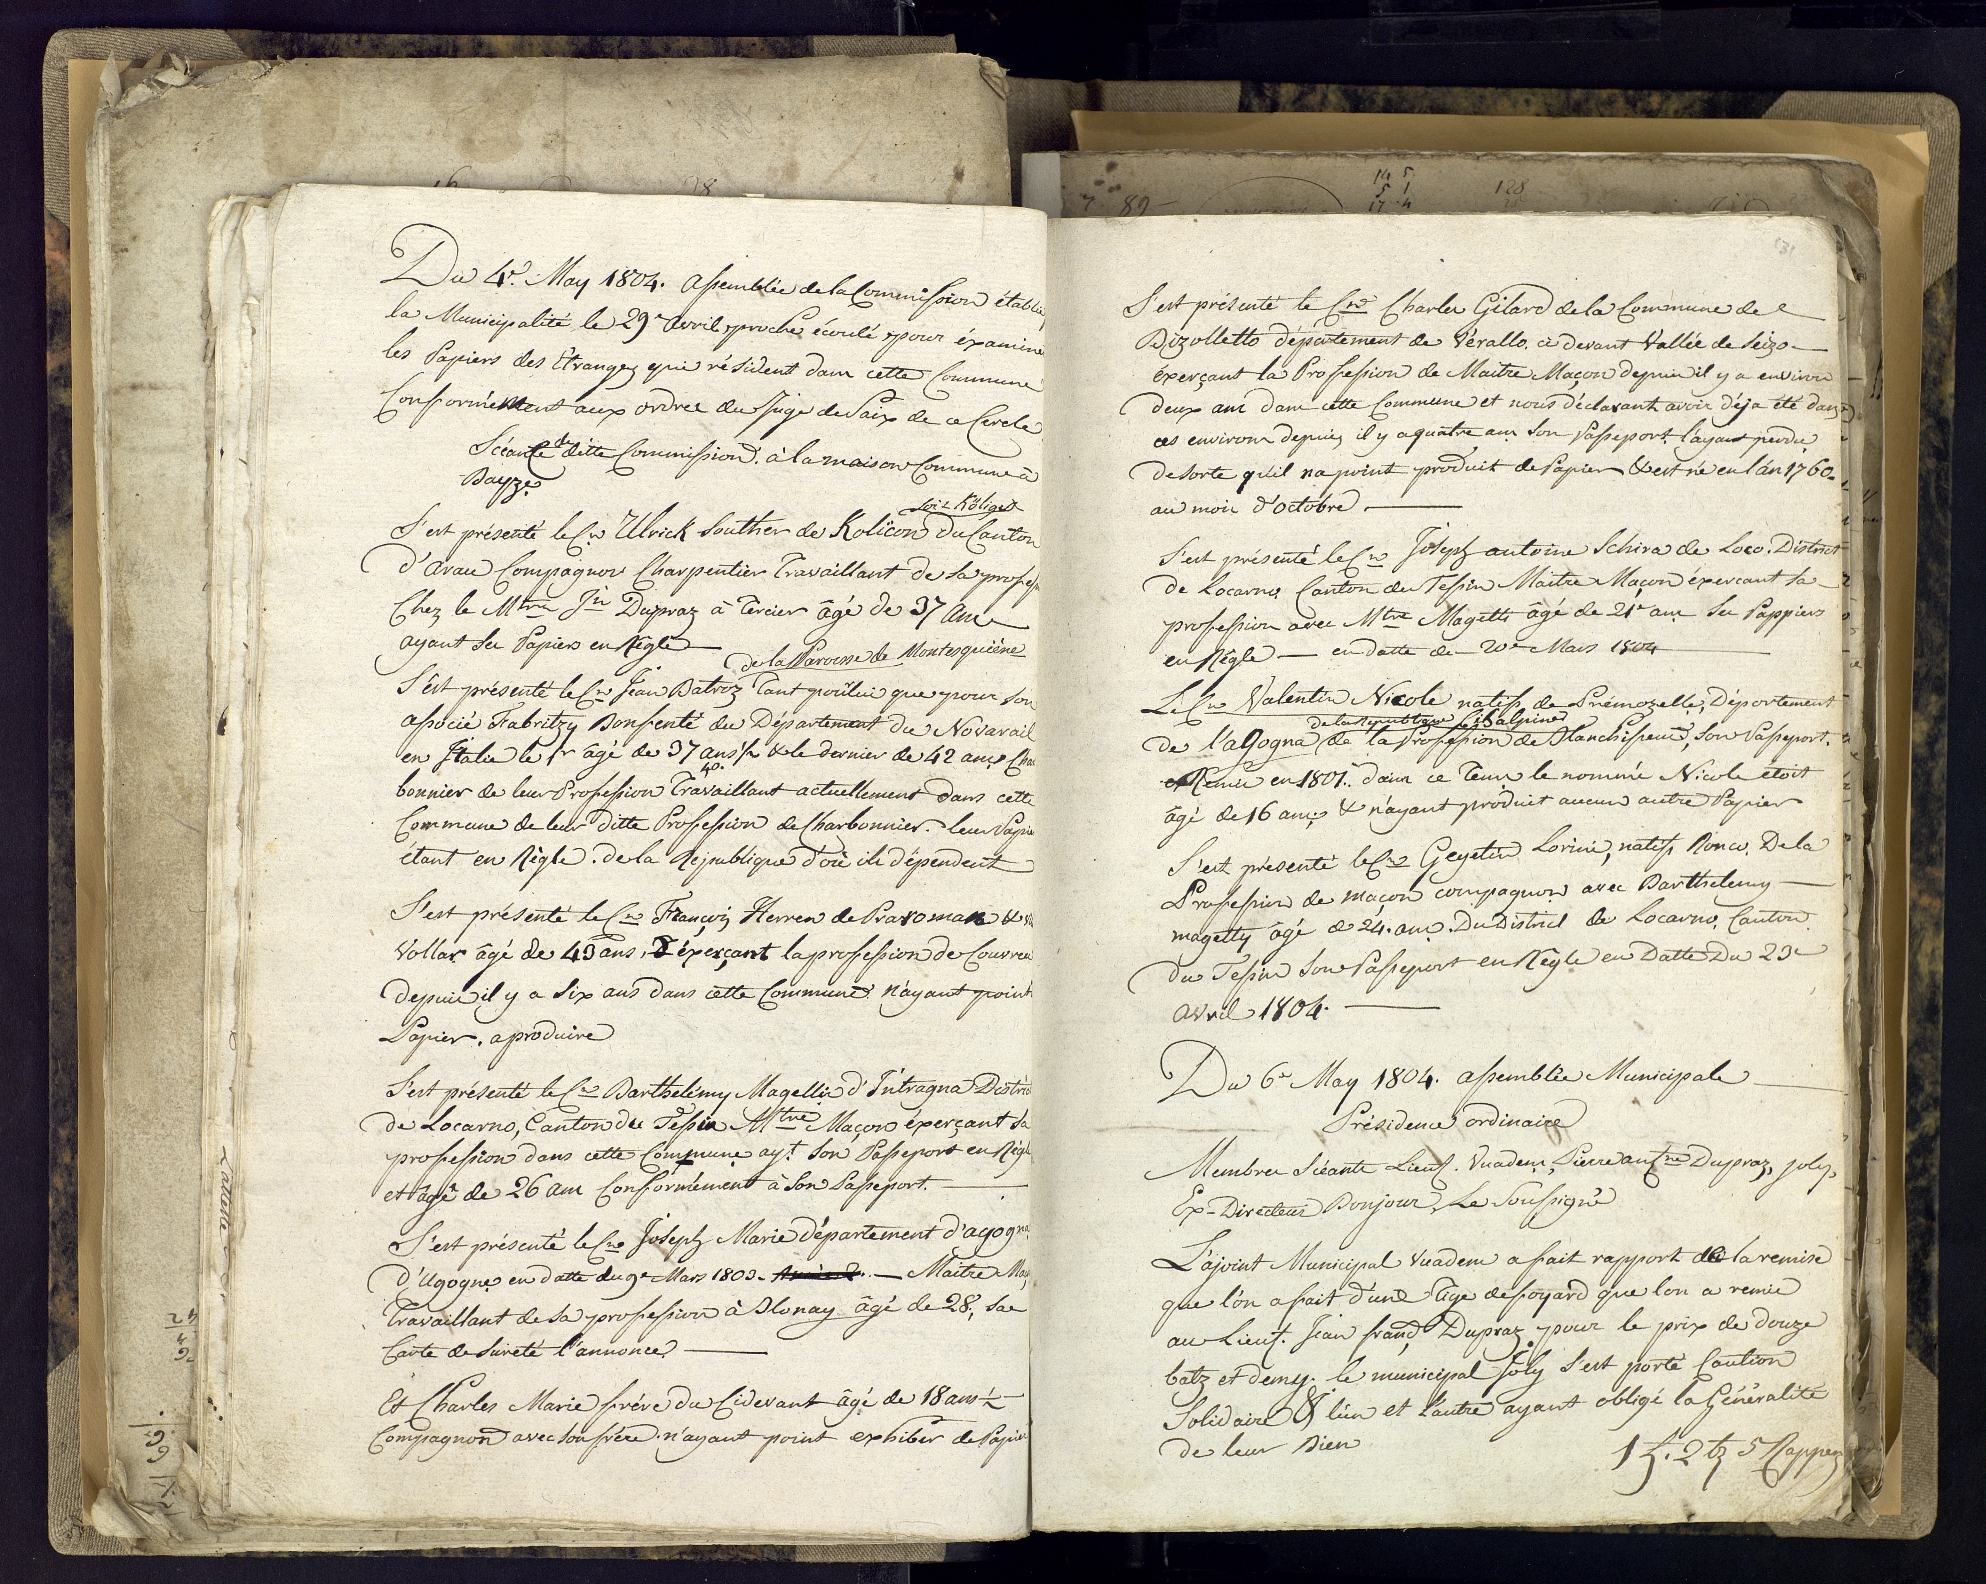 Du 4e. May 1804. assemblée de la Commission établie
la Municipalité le 29e avril proche écoulé pour éxamine
les Papiers des Etranges qui résident dans cette Commune
Conformément aux ordres du Juge de Paix de ce Cercle
Scéance de ditte Commission à la maison Commune à
Bayze
soit Köliget
S'est présenté le Cn Ulrick Souther de Kolicon du Canton
d'arau Compagnon Charpentier Travaillant de sa profess
Chez le Mtre Jn Dupraz à Tercier âgé de 37 ans
ayant ses Papiers en Règle
de la Paroisse de Montesquiéne
S'est présenté le Cn Jean Batroz Tant pour lui que pour son
associé Fabritzy Bonfenté du Département du Novarail
en Italie le 1r âgé de 37 ans ½ & le dernier de 42 ans Cha
40.
bonnier de leur Profession Travaillant actuellement dans cette
Commune de leur ditte Profession de Charbonnier. leur Papie
étant en Règle. de la République d'où ils dépendent
S'est présenté le Cn François Herren de Pravoman &
Vollar âgé de 43 ans, éxerçant la profession de Couvreu
depuis il y a six ans dans cette Commune n'ayant point
Papier. a produire
S'est présenté le Cn Barthelémy Magellia d'Intragna District
de Locarno, Canton du Tessin Mtre Maçon éxerçant sa
profession dans cette Commune ayt. son Passeport en Régle
et âgé de 26 ans Conformément à son Passeport.
S'est présenté le Cn Joseph Marie département d'agogna
d'Ugogne en datte du 9e Mars 1803. Maitre Maç
Travaillant de sa profession à Blonay âgé de 28, sa
Carte de Sureté l'annonce
Et Charles Marie frére du Cidevant âgé de 18 ans ½
Compagnon avec son frére n'ayant point exhiber de Papier
S'est présenté le Cn Charles Gilard de la Commune de
Bizolletto département de Vérallo ci devant Vallée de Seizo
éxerçant la Profession de Maitre Maçon depuis il y a environ
deux ans dans cette Commune et nous déclarant avoir déja été dans
ces environs depuis il y a quatre ans son Passeport l'ayant perdu
de sorte qu'il na point produit de Papier & est né en l'an 1760.
au mois d'octobre
S'est présenté le Cn Joseph antoine Schira de Loco. District
de Locarno Canton du Tessin Maitre Maçon éxercant sa
profession avec Mtre Magetti âgé de 21e ans ses Pappiers
en Règle — en datte de 20e Mars 1804
Le Cn Valentin Nicole natif de Prémozelle, Département
de la République Cisalpine
de l'agogna de la Profession de Blanchisseur, son Passeport
Remis en 1801. dans ce Tems le nommé Nicole étoit
âgé de 16 ans & n'ayant produit aucun autre Papier
S'est présenté le Cn Gegetin Lorini, natif Ronco. De la
Profession de maçon compagnon avec Barthelemy
magetty âgé de 24. ans. Du District de Locarno. Canton
du Tessin son Passeport en Règle en Datte Du 23e
avril 1804.
Du 6e May 1804. assemblée Municipale
Présidence ordinaire
Membres Scéants Lieut. Vuadens, Pierre antne Dupraz, joly,
Ex-Directeur Bonjour, Le Soussigné
L'ajoint Municipal Vuadens a fait rapport de la remise
que l'ón a fait d'une Tige de foyard que lón a remis
au Lieut. Jean franç Dupraz pour le prix de douze
batz et demy. le municipal Joly s'est porté Caution
Solidaire & lún et l'autre ayant obligé la Généralité
de leur Bien
1 f. 2 bz 5 Rappes